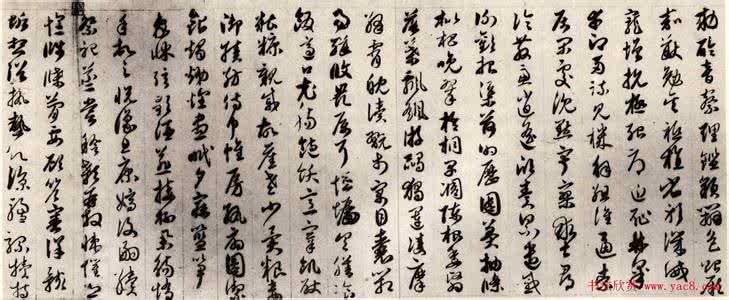 敕聆音察理鑑貌辨色貽厥
嘉猷勉其祗植省躬譏誡
寵增抗極殆辱近恥林皋
幸即兩疏見機解組誰逼索
居閑處沈默寂寥求古尋
論散慮逍遙欣奏累遣慼
謝歡招渠荷的歷園莽抽條
枇杷晚翠梧桐早凋陳根委翳
落葉飄颻遊鵾獨運凌摩
絳霄耽讀翫市寓目囊箱
易輶攸畏屬耳垣牆具膳飡
飯適口充腸飽飫烹宰飢厭
糟糠親戚故舊老少異糧妾
御績紡侍巾帷房紈扇圓潔
銀燭煒煌晝眠夕寐藍笋
象床弦歌酒讌接杯舉觴矯
手頓足悅豫且康嫡後嗣續
祭祀蒸嘗稽顙再拜悚懼恐
惶牋牒簡要顧答審詳骸
垢想浴執熱願涼驢騾犢特
书法欣赏 www.yac8.com